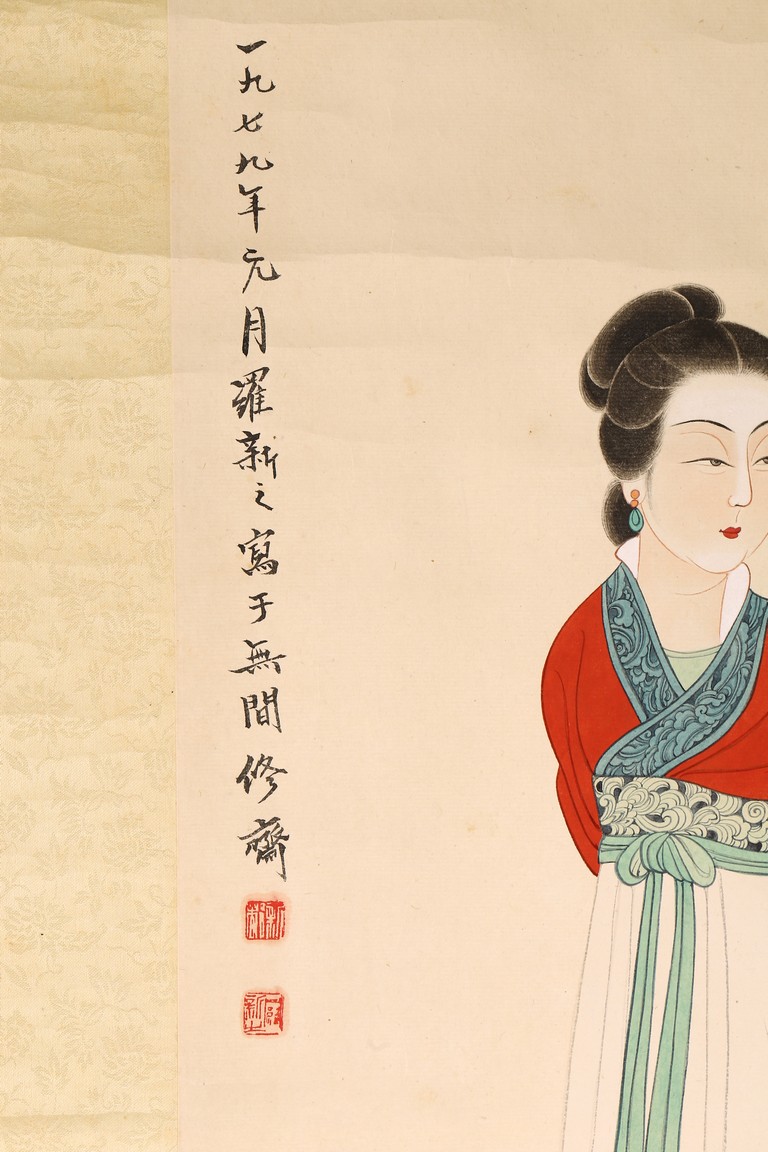 一九七九年元月羅新之寫于無間修齋